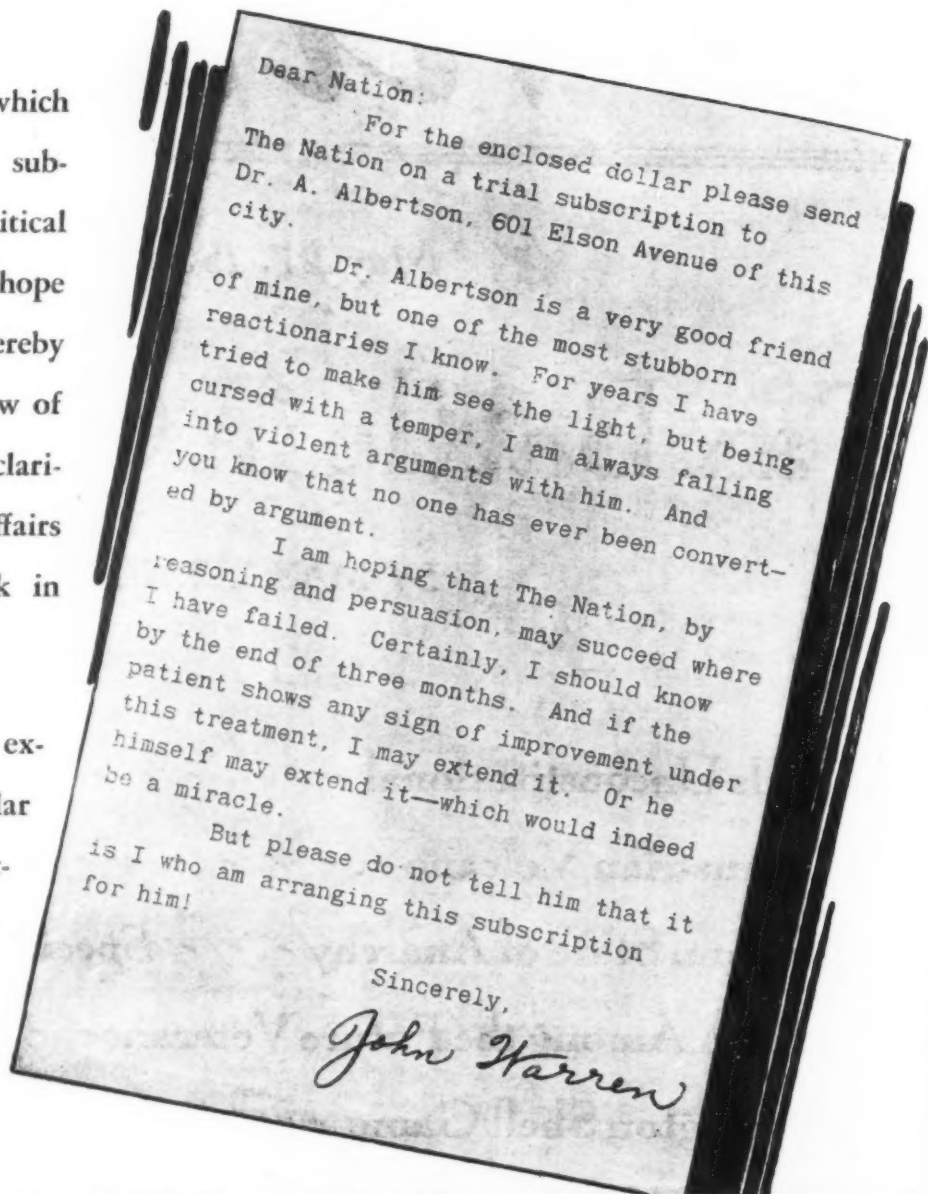 which
sub-
itical
hope
ereby
w of
clari-
ffairs
k in
ex-
lar
-
Dear Nation:
For the enclosed dollar please send
The Nation on a trial subscription to
Dr. A. Albertson, 601 Elson Avenue of this
city.
Dr. Albertson is a very good friend
of mine, but one of the most stubborn
reactionaries I know. For years I have
tried to make him see the light, but being
cursed with a temper, I am always falling
into violent arguments with him. And
you know that no one has ever been convert-
ed by argument.
I am hoping that The Nation, by
reasoning and persuasion, may succeed where
I have failed. Certainly, I should know
by the end of three months. And if the
patient shows any sign of improvement under
this treatment, I may extend it. Or he
himself may extend it—which would indeed
be a miracle.
But please do not tell him that it
is I who am arranging this subscription
for him!
Sincerely,
John Warren